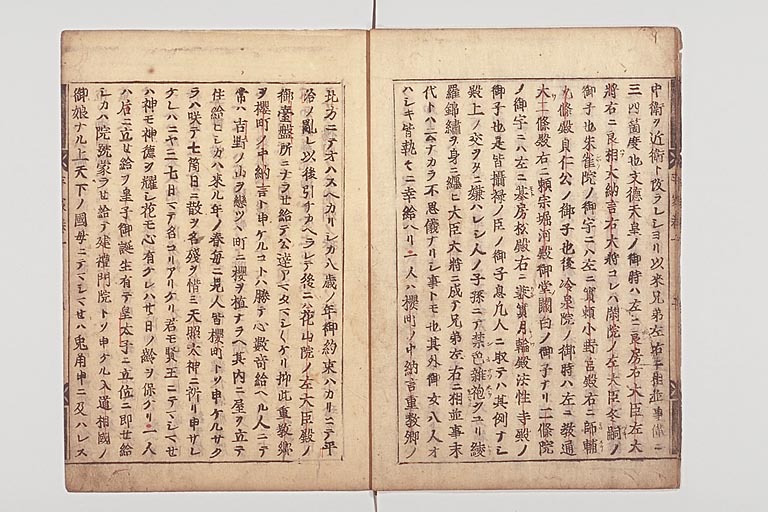 中衛ヲ近衛ト改ラレシヨリ以来兄弟左右ニ相並事僅ニ
三四箇度也文徳天皇ノ御時ハ左ニ良房右大臣左大
将右ニ良相大納言右大将コレハ閑院ノ左大臣冬嗣ノ
御子也朱雀院ノ御宇ニハ左ニ實頼小野宮殿右ニ師輔
九條殿貞仁公ノ御子也後冷泉院ノ御時ハ左ニ教通
大二條殿右ニ頼宗堀河殿御堂關白ノ御子ナリ二條院
ノ御宇ニハ左ニ基房松殿右ニ兼實月輪殿法性寺殿ノ
御子也是皆攝禄ノ臣ノ御子息凡人ニ取テハ其例ナシ
殿上ノ交ヲタニ嫌ハレシ人ノ子孫ニテ禁色雜袍ヲユリ綾
羅錦繡ヲ身ニ纏ヒ大臣大將ニ成テ兄弟左右ニ相並事末
代トハ云ナカラ不思儀ナリシ事トモ也其外御女八人オ
ハシキ皆執々ニ幸給ヘリ一人ハ櫻町ノ中納言重教卿ノ
北方ニテオハスヘカリシカ八歳ノ年御約束ハカリニテ平
治ノ亂レ以後引チカヘラレテ後ニハ花山院ノ左大臣殿ノ
御臺盤所ニナラせ給テ公達アマタマシ〱ケリ抑此重教卿
ヲ櫻町ノ中納言ト申ケルコトハ勝テ心數奇給ヘル人ニテ
常ハ吉野ノ山ヲ戀ツヽ町ニ櫻ヲ植ナラヘ其内ニ屋ヲ立テ
住給ヒシカハ来ル年ノ春毎ニ見人皆櫻町トソ申ケルサク
ラハ咲テ七箇日ニ散ヲ名殘ヲ惜ミ天照太神ニ祈リ申サレ
ケレハニヤ三七日マテ名コリアリケリ君モ賢王ニテマシマせ
ハ神モ神徳ヲ耀シ花モ心有ケレハ廿日ノ齢ヲ保ケリ一人
ハ后ニ立せ給フ皇子御誕生有テ皇太子ニ立位ニ即せ給
シカハ院號蒙ラせ給テ建禮門院トソ申ケル入道相國ノ
御娘ナル上天下ノ國母ニテマシマせハ兎角申ニ及ハレス